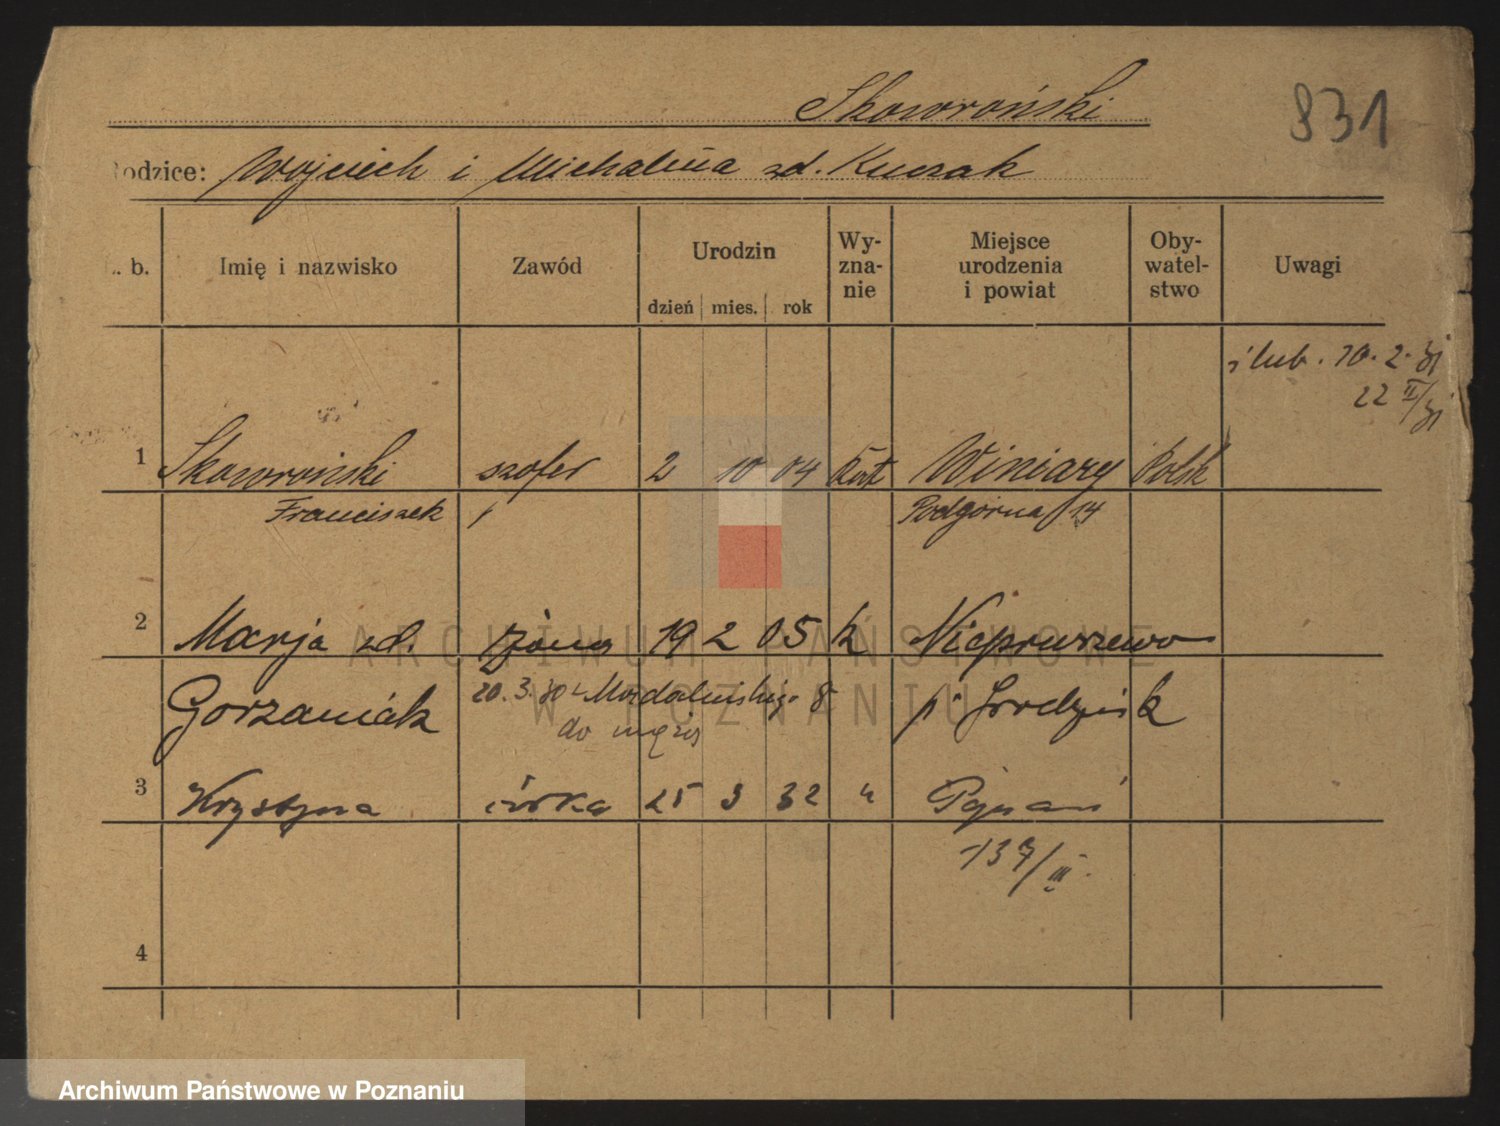 Skowroński
831
Rodzice: Wojciech i Michalina zd. Kuczak
L. b.
Imię i nazwisko
Zawód
Urodzin
dzień mies. rok
Wy-
zna-
nie
Miejsce
urodzenia
i powiat
Oby-
watel-
stwo
Uwagi
ślub. 10. 2. 31
22 II/31
1 Skowroński szofer 2 10 04 Kat Winiary Polsk
Franciszek Podgórna 14
2 Marja zd. żona 19 2 05 k Niepruszewo
Gorzaniak 20. 3. 8 p. Grodzisk
do męża
3 Krystyna córka 25 3 32 " Poznań
137/III.
4
ARCHIWUM PAŃSTWOWE
W POZNANIU
Archiwum Państwowe w Poznaniu